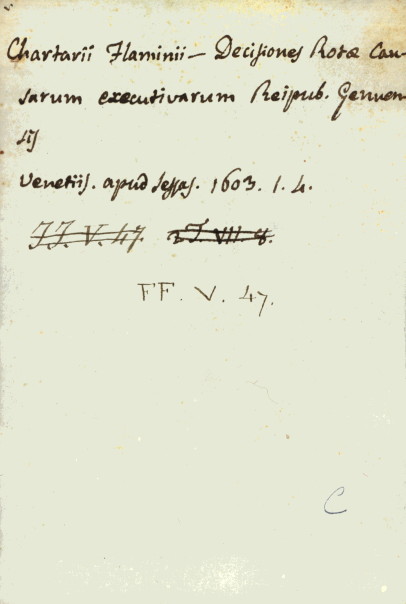 Chartarii Flaminii — Decisiones Rotæ Cau-
sarum executivarum Reipub. Genuen-
sis
Venetiis. apud Sessas. 1603. 1. 4.
FF. V. 47. 2F. VII. 8.
FF. V. 47.
C